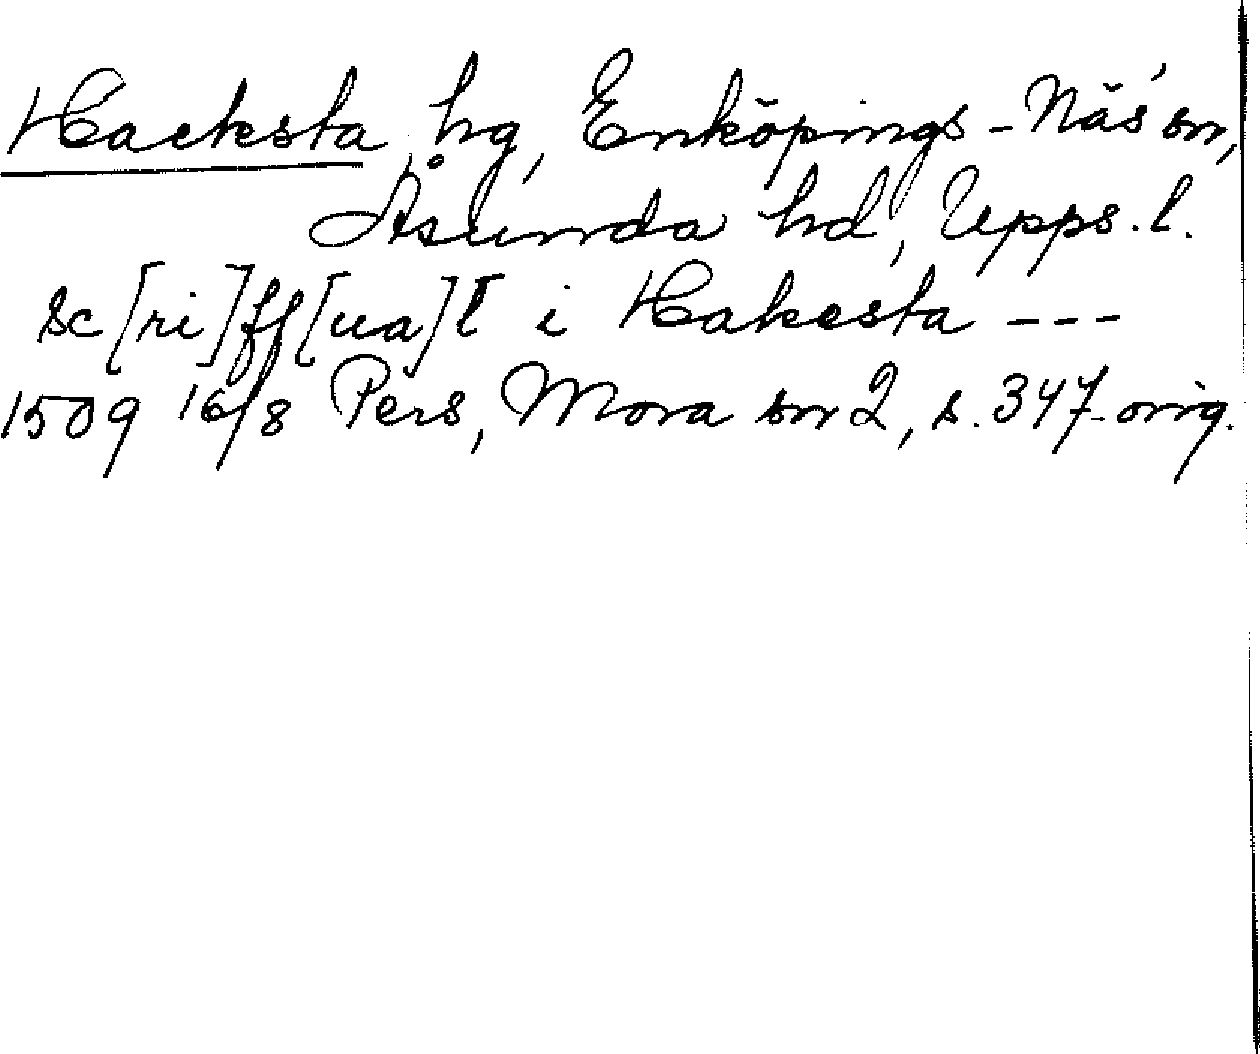 Hacksta hg, Enköpings-Näs sn,
Åsunda hd, Upps. l.
sc[ri]ff[ua]t i Hakesta ---
1509 16/8 Pers, Mora sn 2, s. 347 orig.